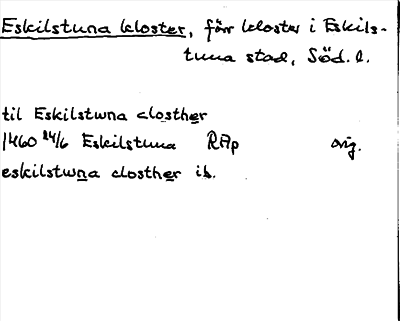 Eskilstuna kloster, förr kloster i Eskils-
tuna stad, Söd. l.
til Eskilstwna closther
1460 24/6 Eskilstuna RAp orig.
eskilstwna closther ib.